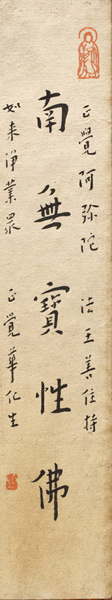 正覺阿弥陀 法王善住持
南無寶性佛
如来淨華眾 正覺華化生